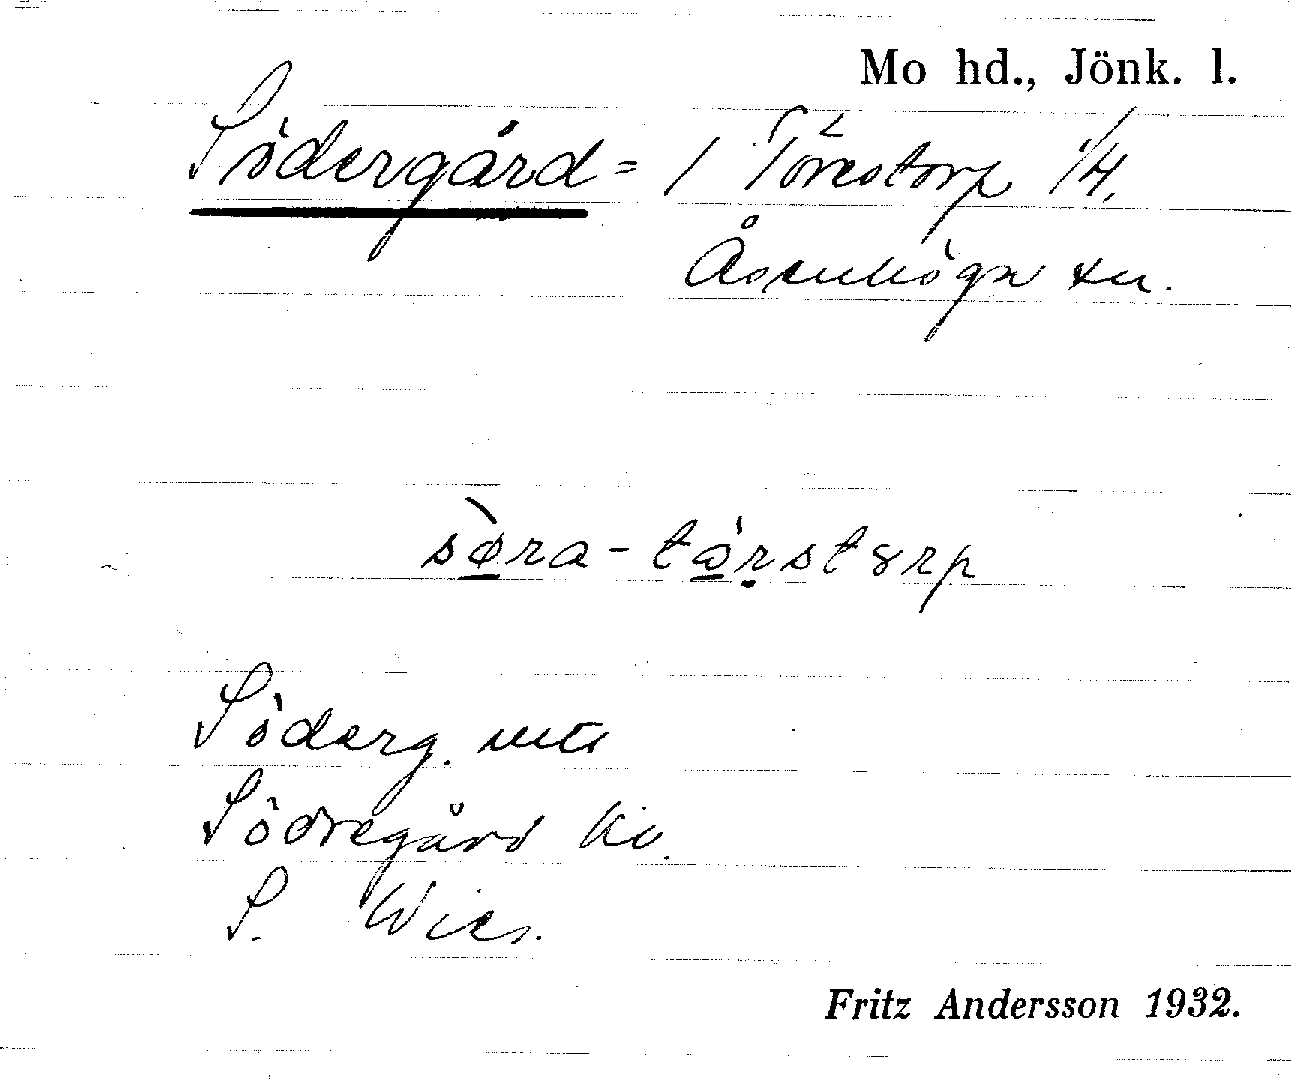 Mo hd., Jönk. l.
Södergård = / Törestorp 1/4,
Åsenhöga sn.
sø̀ra-tǿrstȣrp
Söderg.
Södregård
S. Wies.
Fritz Andersson 1932.